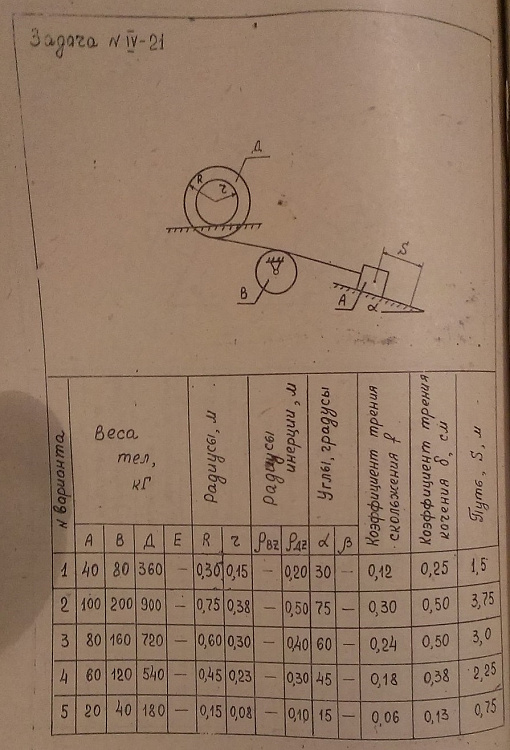 Задача N IV-21
Д
R
r
В
А
α
S
N варианта
Веса тел, кГ
Радиусы, м
Радиусы инерции, м
Углы, градусы
Коэффициент трения скольжения f
Коэффициент трения качения δ, см
Путь, S, м
А В Д Е R r ρВz ρДz α β
1 40 80 360 — 0,30 0,15 — 0,20 30 — 0,12 0,25 1,5
2 100 200 900 — 0,75 0,38 — 0,50 75 — 0,30 0,50 3,75
3 80 160 720 — 0,60 0,30 — 0,40 60 — 0,24 0,50 3,0
4 60 120 540 — 0,45 0,23 — 0,30 45 — 0,18 0,38 2,25
5 20 40 180 — 0,15 0,08 — 0,10 15 — 0,06 0,13 0,75